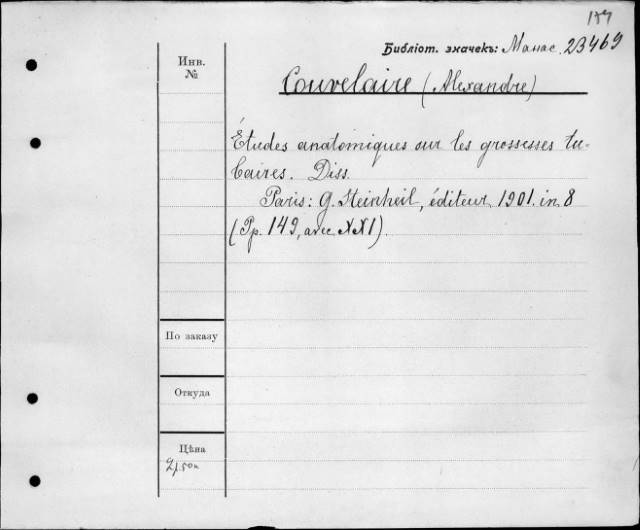 Библіот. значекъ: Манас. 23469
Инв.
№
Couvelaire (Alexandre)
Études anatomiques sur les grossesses tu-
baires. Diss.
Paris: G. Steinheil, éditeur 1901. in 8
(Pp. 149, avec XXI).
По заказу
Откуда
Цѣна